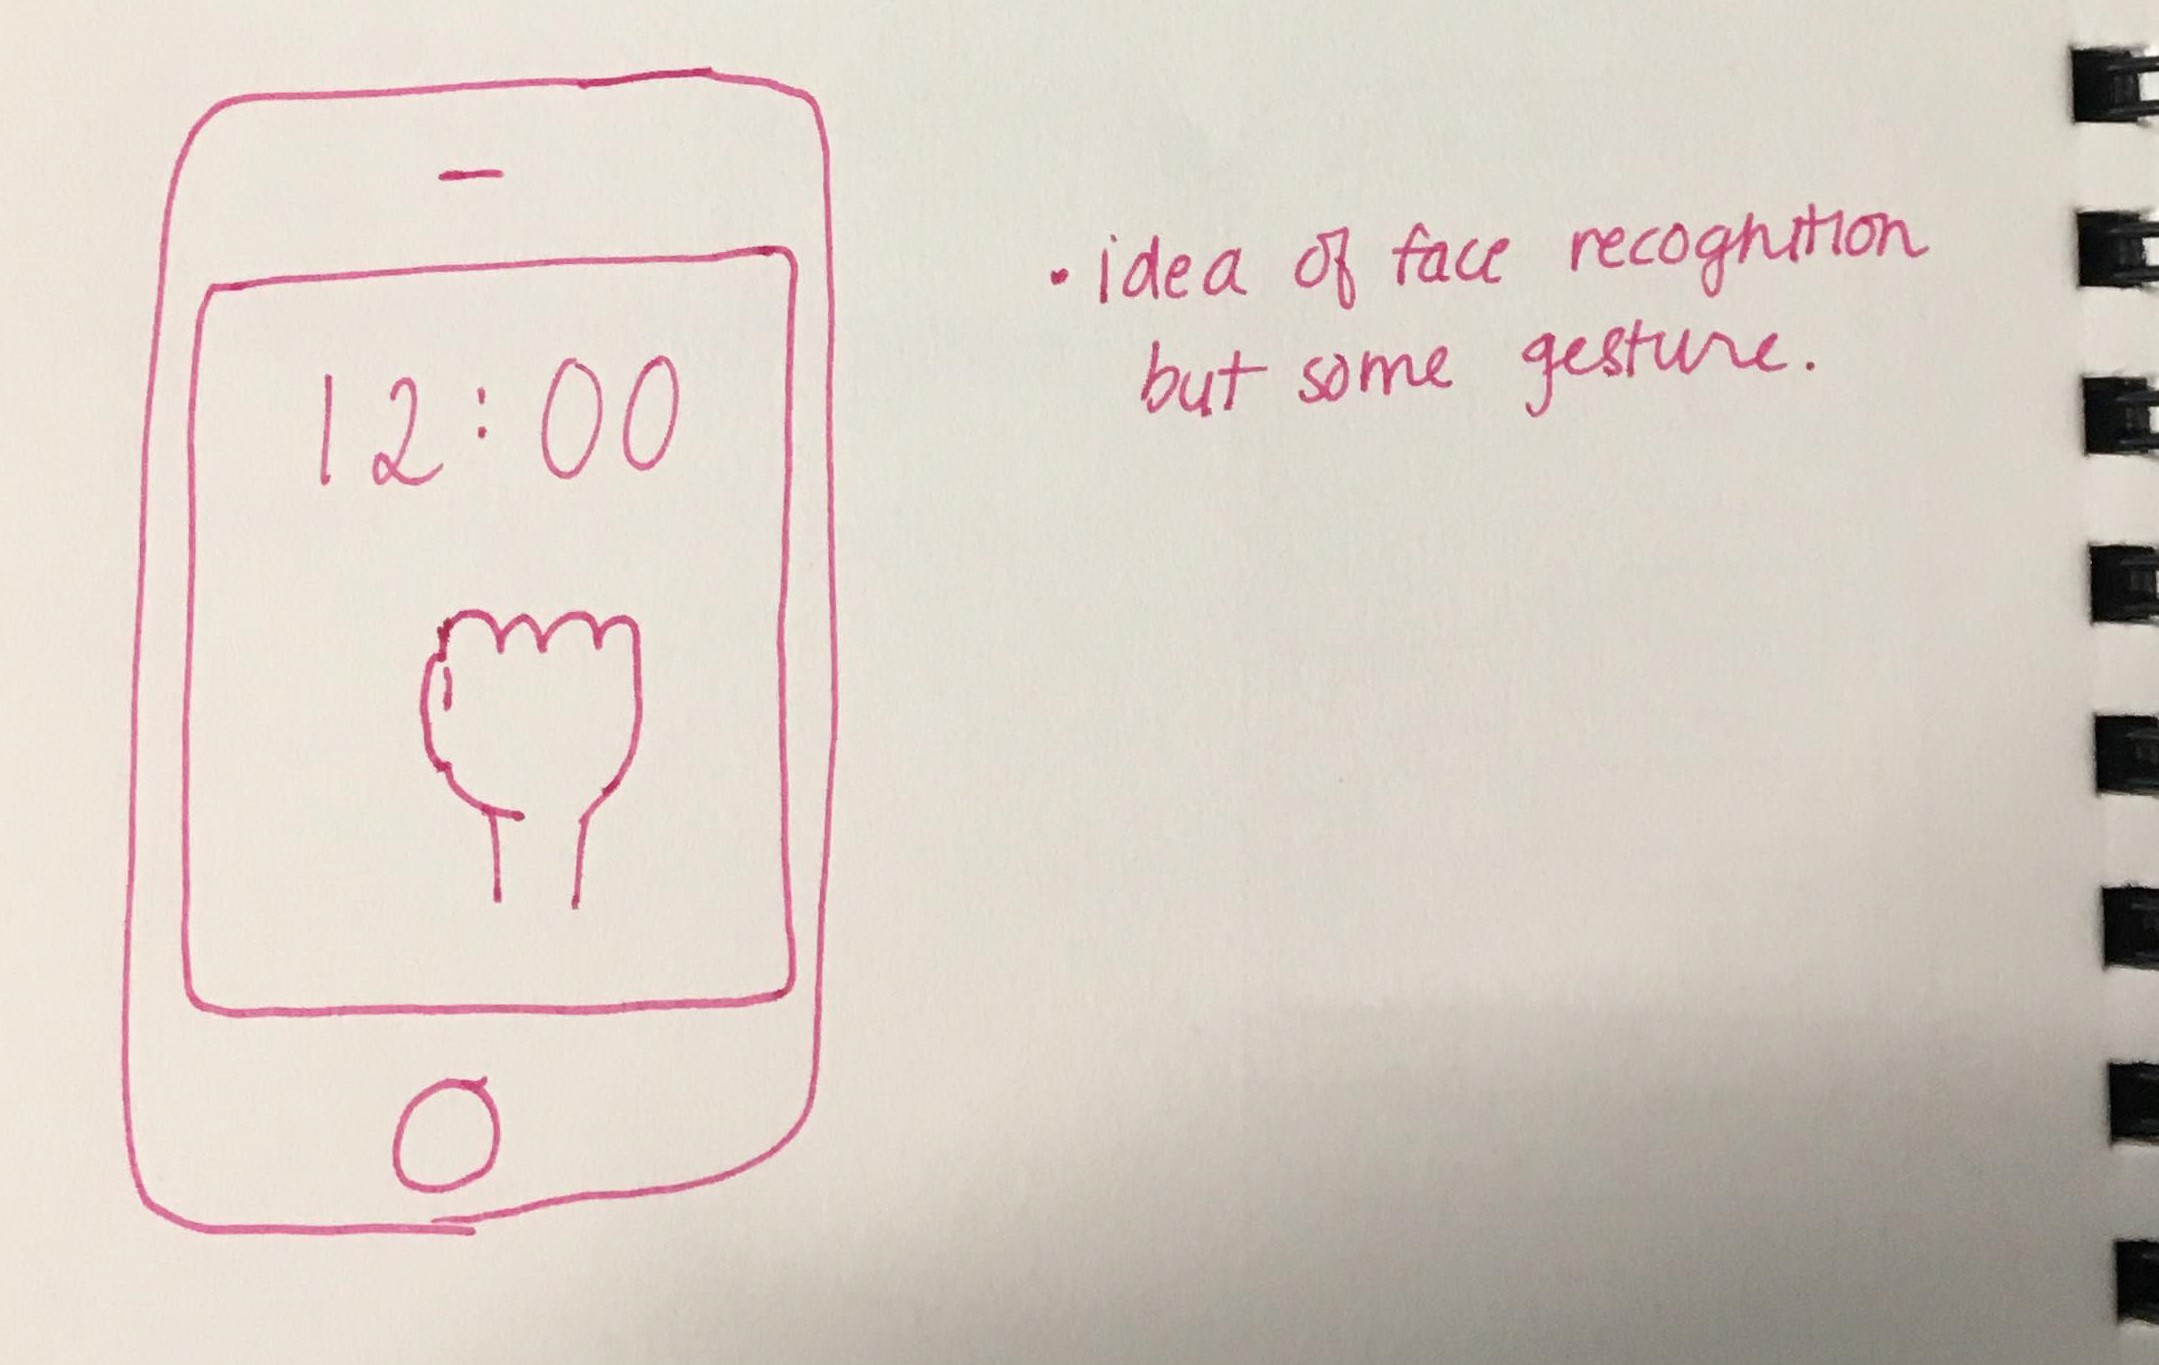 12:00
• idea of face recoghition
but some gesture.